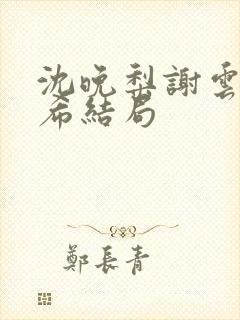 沈晚梨謝雲
希結局
鄭長青